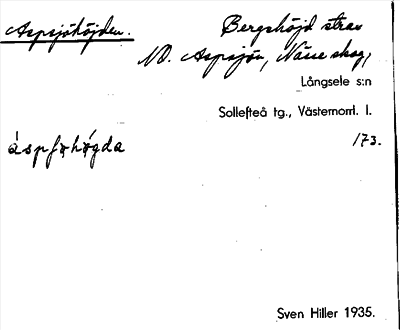 Aspsjöhöjden. Bergshöjd strax
NO. Aspsjön, Näsie skog,
Långsele s:n
Sollefteå tg., Västernorrl. l.
173.
áspføhǿgda
Sven Hiller 1935.